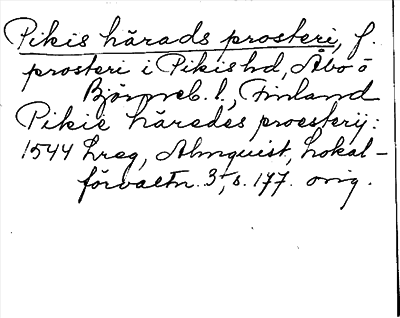 Pikis härads prosteri, f.
prosteri i Pikis hd, Åbo o
Björneb. l., Finland
Pikie häredes proesterij:
1544 hreg, Almquist, Lokal-
förvaltn. 3, s. 177. orig.